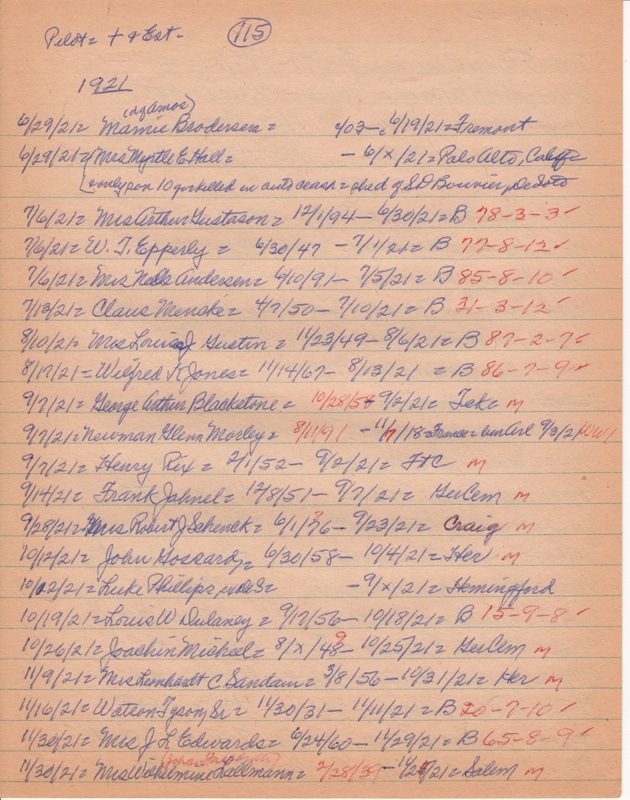 Pilot = + & Est - 115
1921
(dg Amos)
6/29/21 = Mamie Brodersen = 4/03 - 6/19/21 = Fremont
6/29/21 = Mrs Myrtle E. Hall = - 6/x/21 = Palo Alto, Calif
& only son 10 yr killed in auto crash = of S D Bounier, DeSoto
7/6/21 = Mrs Arthur Gustafson = 12/1/94 - 6/30/21 = B 78-3-3 ✓
7/6/21 = W. T. Epperly = 6/30/47 - 7/1/21 = B 77-8-12 ✓
7/6/21 = Mrs Nels Andersen = 6/10/91 - 7/5/21 = B 85-8-10 ✓
7/13/21 = Claus Mencke = 4/7/50 - 7/10/21 = B 31-3-12 ✓
8/10/21 = Mrs Louis J Gustin = 11/23/49 - 8/6/21 = B 87-2-7 ✓
8/17/21 = Wilfred K Jones = 11/14/67 - 8/13/21 = B 86-7-9 ✓
9/7/21 = George Arthur Blackstone = 10/28/54 9/2/21 = Tek M
9/7/21 = Newman Glenn Mosley = 8/11/91 - 11/7/18 = France = bur Arl 9/3/21 WW1
9/7/21 = Henry Rix = 2/1/52 - 9/2/21 = FtC M
9/14/21 = Frank Jahnel = 12/8/51 - 9/7/21 = GerCem M
9/28/21 = Mrs Robert J Schenck = 6/1/76 - 9/23/21 = Craig M
10/12/21 = John Gossard, = 6/30/58 - 10/4/21 = Her M
10/12/21 = Luke Phillips = - 9/x/21 = Hemingford
10/19/21 = Louis W Dulaney = 9/17/56 - 10/18/21 = B 15-9-8 ✓
10/26/21 = Joachin Michael = 8/x/48 9 - 10/25/21 = GerCem M
11/9/21 = Mrs Leonhardt C Sandau = 3/8/56 - 10/31/21 = Her M
11/16/21 = Watson Tyson, Sr = 11/30/31 - 11/11/21 = B 20-7-10 ✓
11/30/21 = Mrs J L Edwards = 6/24/60 - 11/29/21 = B 65-8-9 ✓
11/30/21 = Mrs Wilhelmine Lallmann = 2/28/39 - 11/25/21 = Salem M